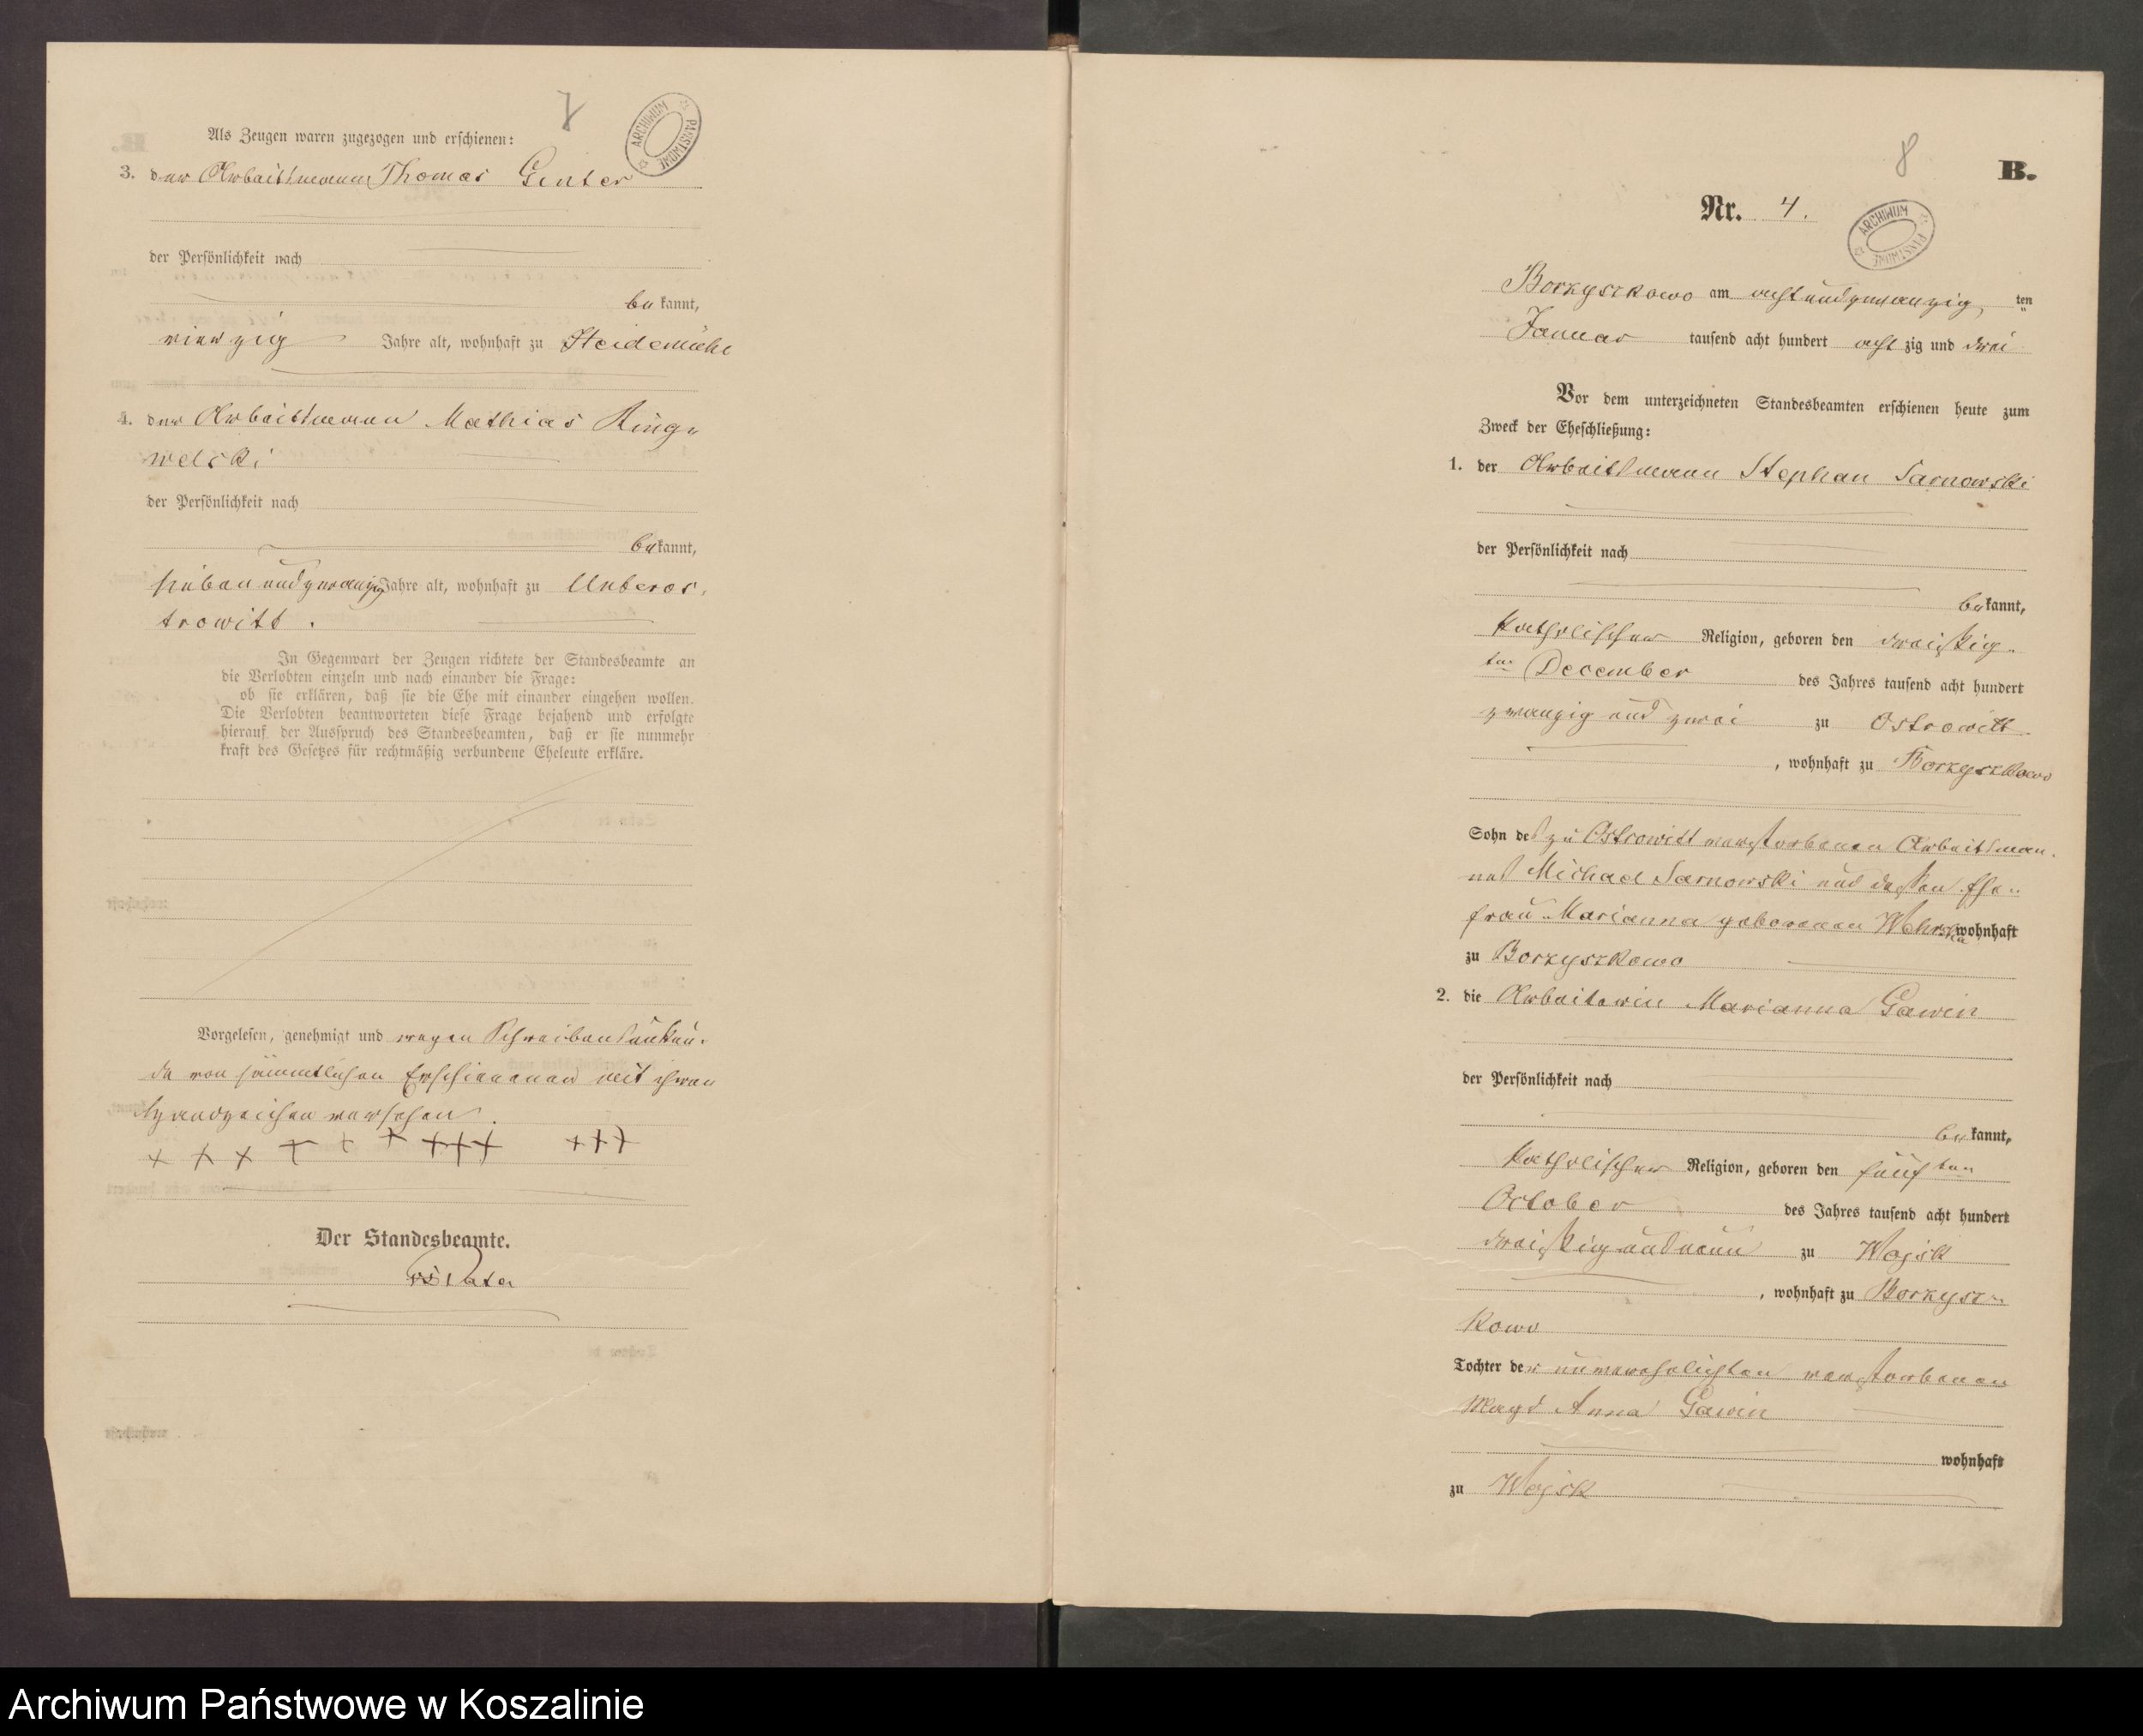 7
ARCHIWUM PAŃSTWOWE
Als Zeugen waren zugezogen und erschienen:
3. der Arbeitsmann Thomas Ginter
der Persönlichkeit nach
bekannt,
vierzig Jahre alt, wohnhaft zu Heidemühl
4. der Arbeitsmann Mathias Ring-
welski
der Persönlichkeit nach
bekannt,
sieben und zwanzig Jahre alt, wohnhaft zu Unteros-
trowitt.
In Gegenwart der Zeugen richtete der Standesbeamte an
die Verlobten einzeln und nach einander die Frage:
ob sie erklären, daß sie die Ehe mit einander eingehen wollen.
Die Verlobten beantworteten diese Frage bejahend und erfolgte
hierauf der Ausspruch des Standesbeamten, daß er sie nunmehr
kraft des Gesetzes für rechtmäßig verbundene Eheleute erkläre.
Vorgelesen, genehmigt und wegen Schreibensunkun-
de von sämmtlichen Erschienenen mit ihren
Handzeichen versehen.
+ + + + + + +++ +++
Der Standesbeamte.
8
B.
Nr. 4.
ARCHIWUM PAŃSTWOWE
Borzyszkowo am achtundzwanzig ten
Januar tausend acht hundert acht zig und drei
Vor dem unterzeichneten Standesbeamten erschienen heute zum
Zweck der Eheschließung:
1. der Arbeitsmann Stephan Sarnowski
der Persönlichkeit nach
bekannt,
katholischer Religion, geboren den dreißig-
ten December des Jahres tausend acht hundert
zwanzig und zwei zu Ostrowitt
, wohnhaft zu Borzyszkowo
Sohn des zu Ostrowitt verstorbenen Arbeitsman-
nes Michael Sarnowski und dessen Ehe-
frau Marianna geborenen wohnhaft
zu Borzyszkowo
2. die Arbeiterin Marianna Gawin
der Persönlichkeit nach
bekannt,
katholischer Religion, geboren den fünften
October des Jahres tausend acht hundert
dreißig und neun zu Wojsk
, wohnhaft zu Borzysz-
kowo
Tochter der unverehelichten verstorbenen
Magd Anna Gawin
wohnhaft
zu Wojsk
Archiwum Państwowe w Koszalinie